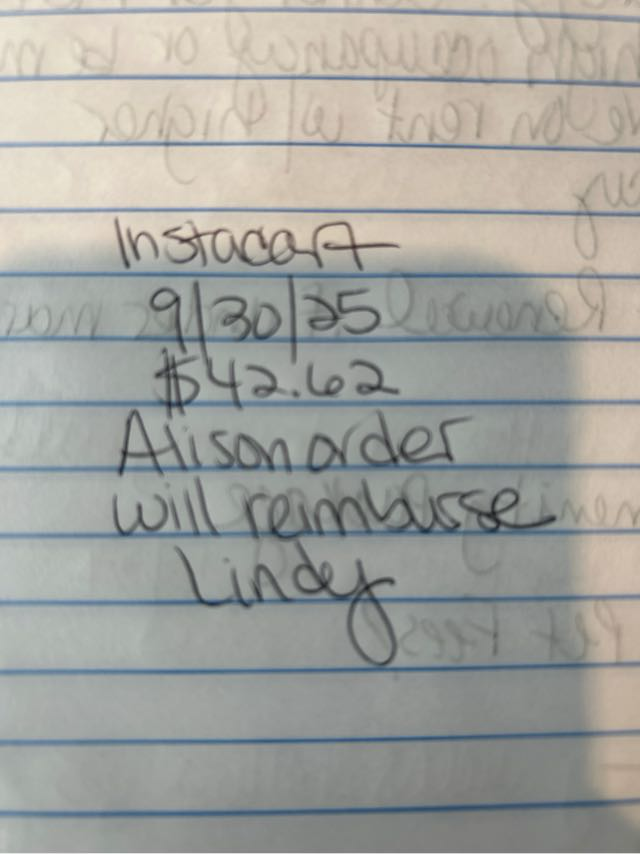 Instacart
9/30/25
$42.62
Alison order
will reimbusse
Lindy